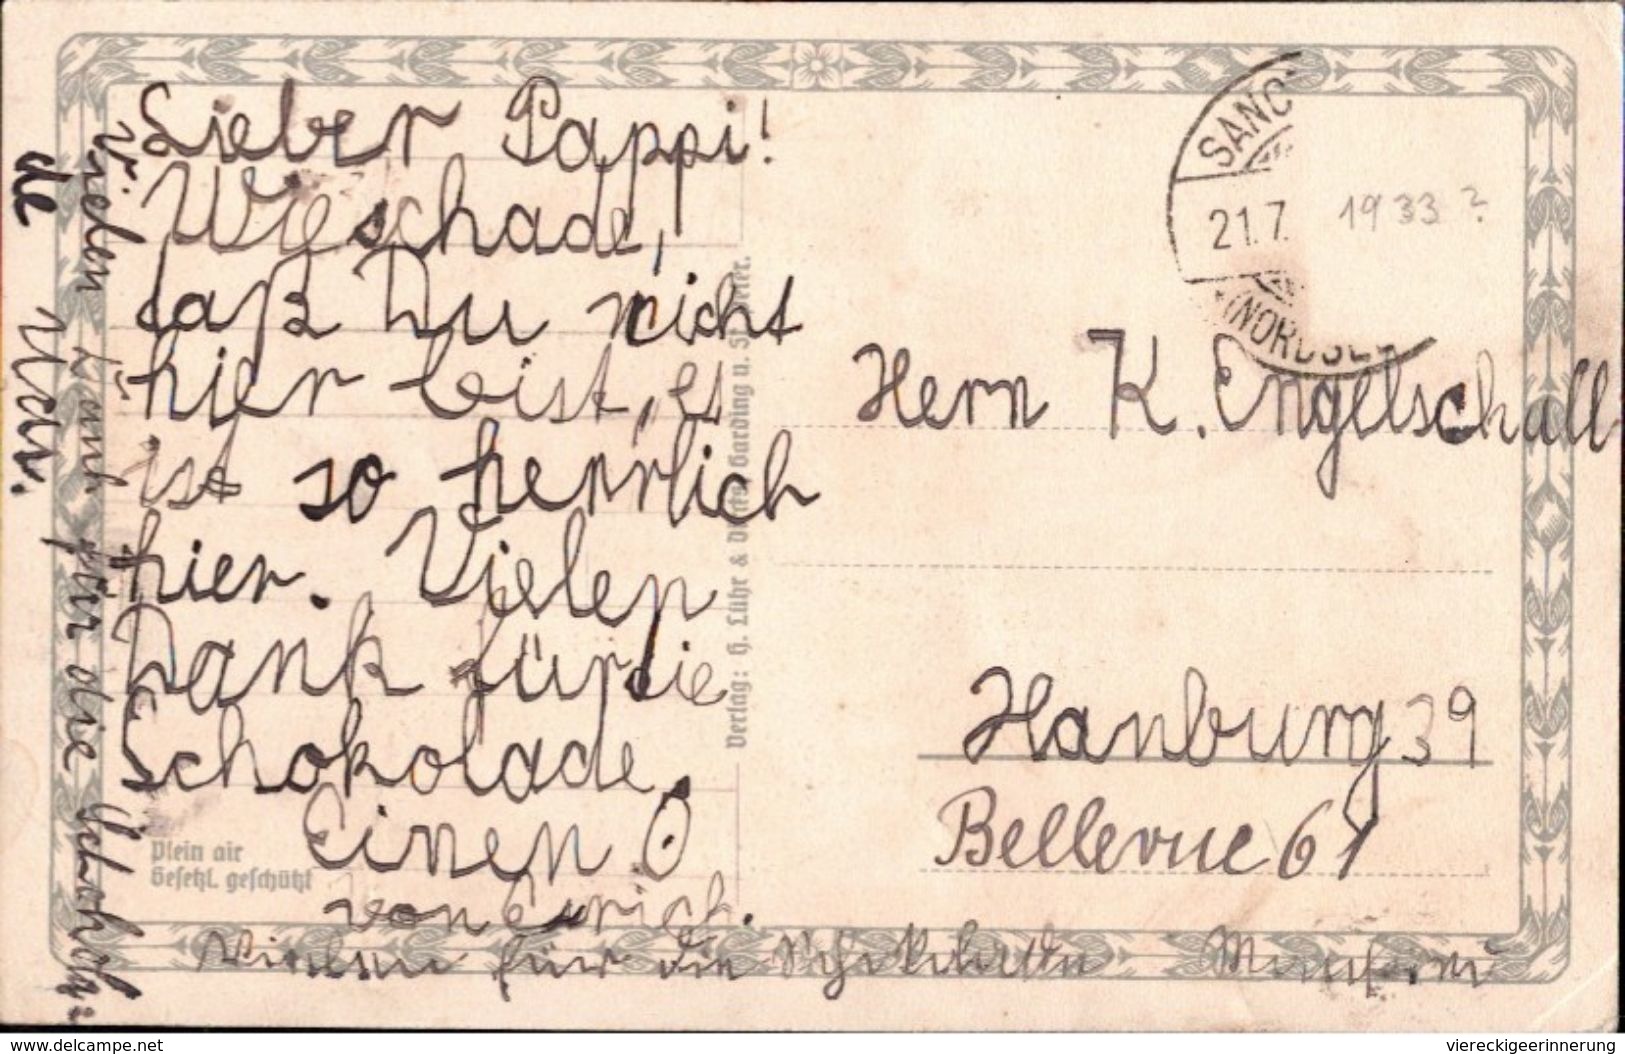 Lieber Pappi!
Wie schade,
daß Du nicht
hier bist, es
ist so herrlich
hier. Vielen
Dank für die
Schokolade.
Einen O
von Erich.
Vielen für die Schokelade
Vielen Dank für die Schoko=
de
Verlag: H. Lühr & Dircks Garding u. St. Peter.
Plein air
Gesetzl. geschützt
SANC
21.7.
(NORDSEE
1933?
Herrn K. Engelschall
Hanburg 39
Bellevue 61
www.delcampe.net
viereckigeerinnerung